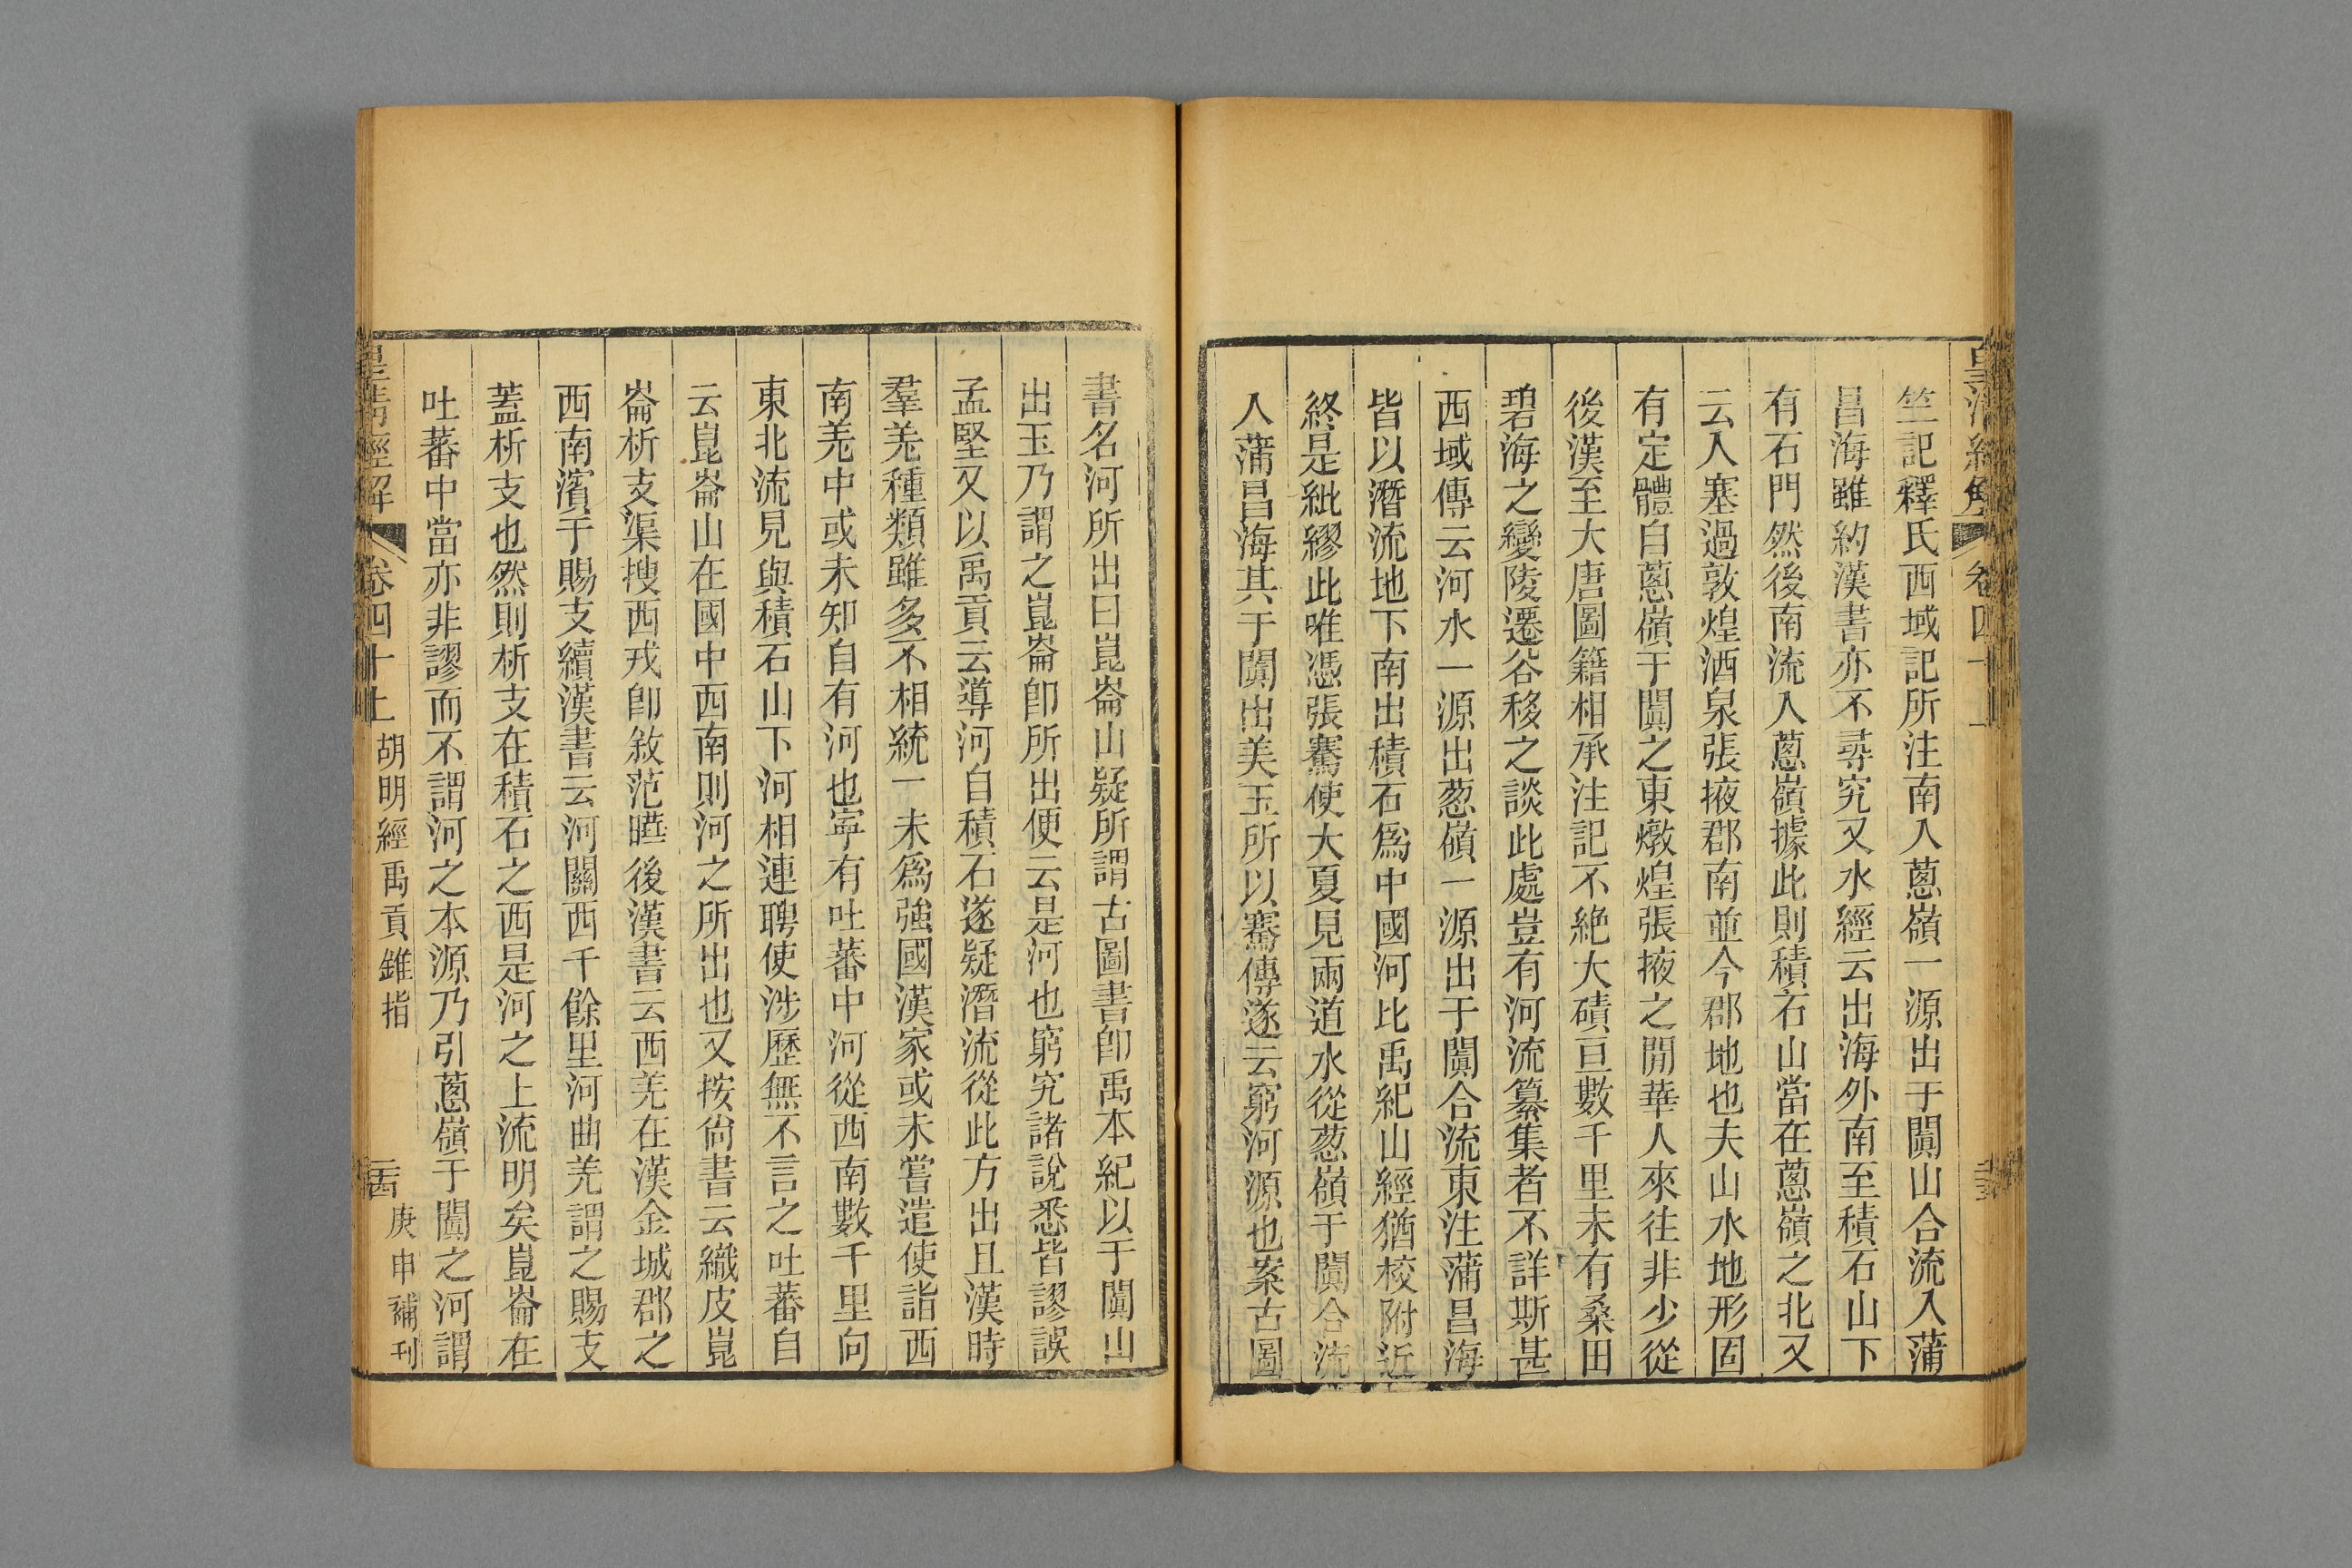 竺記釋氏西域記所注南入蔥嶺一源出于闐山合流入蒲
昌海雖約漢書亦不尋究又水經云出海外南至積石山下
有石門然後南流入蔥嶺據此則積石山當在蔥嶺之北又
云入塞過敦煌酒泉張掖郡南並今郡地也夫山水地形固
有定體自蔥嶺于闐之東燉煌張掖之閒華人來往非少從
後漢至大唐圖籍相承注記不絶大磧亘數千里未有桑田
碧海之變陵遷谷移之談此處豈有河流纂集者不詳斯甚
西域傳云河水一源出葱嶺一源出于闐合流東注蒲昌海
皆以潛流地下南出積石爲中國河比禹紀山經猶校附近
終是紕繆此唯憑張騫使大夏見兩道水從葱嶺于闐合流
入蒲昌海其于闐出美玉所以騫傳遂云窮河源也案古圖
書名河所出曰崑崙山疑所謂古圖書卽禹本紀以于闐山
出玉乃謂之崑崙卽所出便云是河也窮究諸說悉皆謬誤
孟堅又以禹貢云導河自積石遂疑潛流從此方出且漢時
羣羌種類雖多不相統一未爲強國漢家或未嘗遣使詣西
南羌中或未知自有河也寜有吐蕃中河從西南數千里向
東北流見與積石山下河相連聘使涉歷無不言之吐蕃自
云崑崙山在國中西南則河之所出也又按尙書云織皮崑
崙析支渠搜西戎卽敘范曄後漢書云西羌在漢金城郡之
西南濱于賜支續漢書云河關西千餘里河曲羌謂之賜支
蓋析支也然則析支在積石之西是河之上流明矣崑崙在
吐蕃中當亦非謬而不謂河之本源乃引蔥嶺于闐之河謂
皇淸經解 卷四十上 胡明經禹貢錐指 庚申補刊